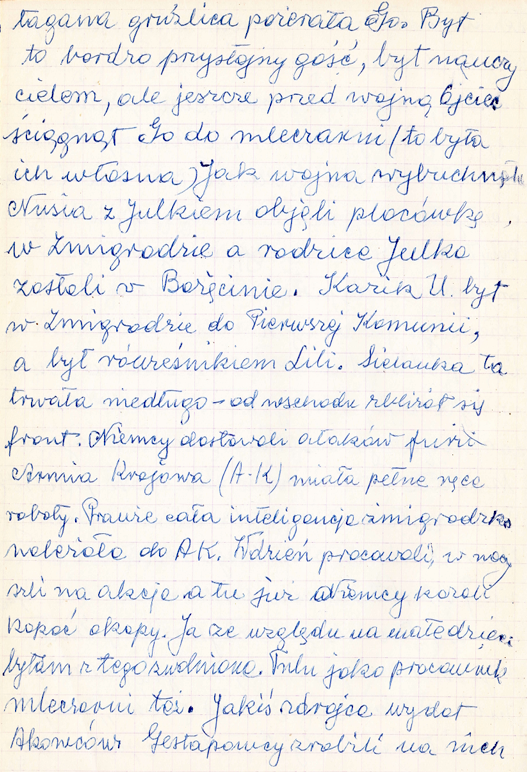 tagana gruźlica pożerała Go. Był
to bardzo przystojny gość, był nauczy
cielem, ale jeszcze przed wojną Ojciec
ściągnął Go do mleczarni (to była
ich własna) Jak wojna wybuchnęła
Nusia z Julkiem objęli placówkę
w Żmigrodzie a rodzice Julka
zostali w Boręcinie. Kazik U. był
w Żmigrodzie do Pierwszej Komunii,
a był rówieśnikiem Lili. Sielanka ta
trwała niedługo - od wschodu zbliżał się
front. Niemcy dostawali ataków furii
Armia Krajowa (A-K) miała pełne ręce
roboty. Prawie cała inteligencja żmigrodzka
należała do AK. W dzień pracowali, w nocy
szli na akcje a tu już Niemcy kazali
kopać okopy. Ja ze względu na małe dzieci
byłam z tego zwolniona. Tulu jako pracownik
mleczarni też. Jakiś zdrajca wydał
Akowców Gestapowcy zrobili na nich